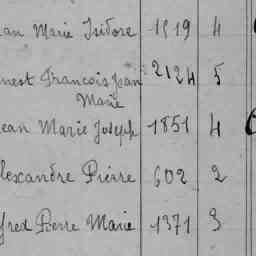 ean Marie Isidore 1519 4
nest François Jean 2124 5
Marie
Jean Marie Joseph 1851 4
lexandre Pierre 602 2
fred Pierre Marie 1371 3